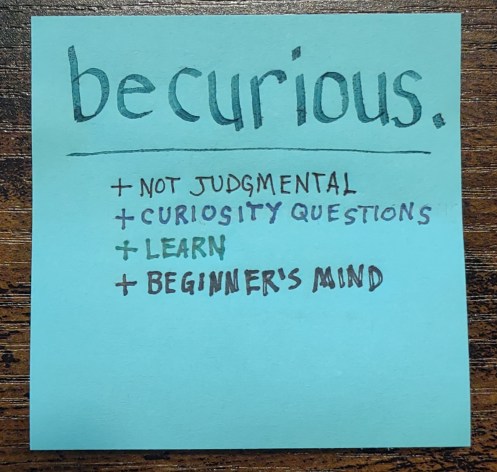 be curious.
+ NOT JUDGMENTAL
+ CURIOSITY QUESTIONS
+ LEARN
+ BEGINNER'S MIND